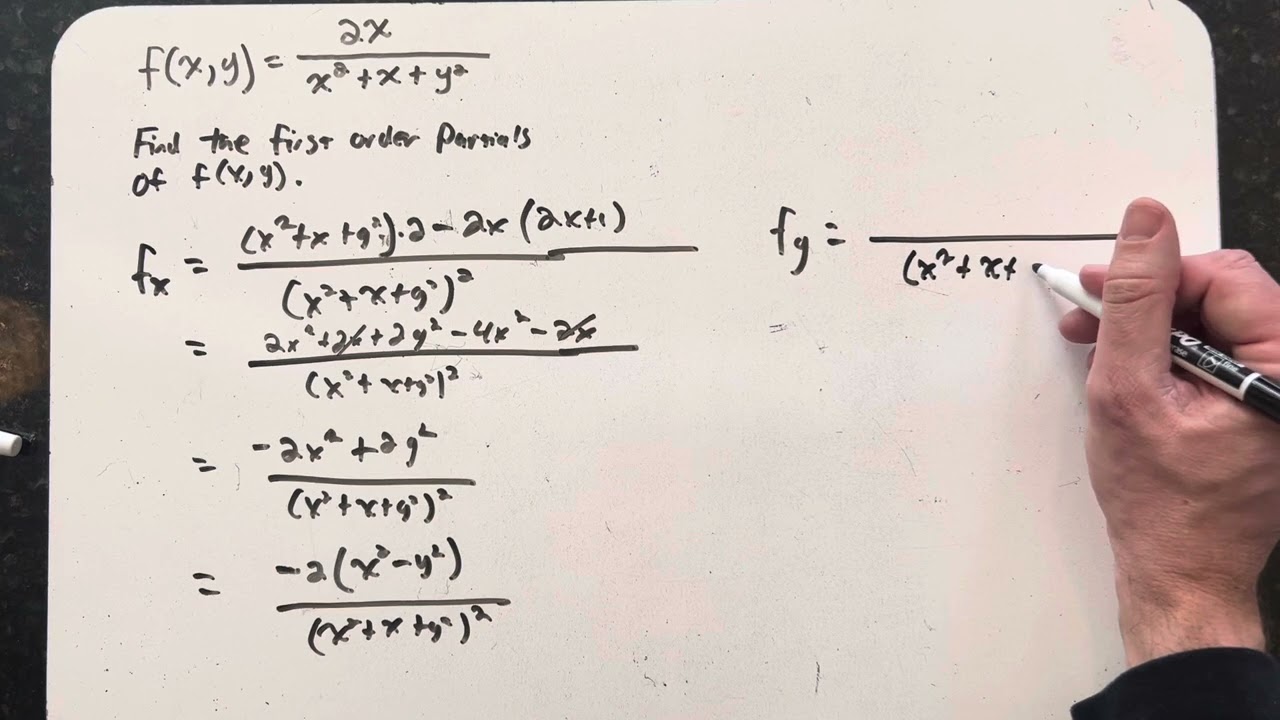 f(x,y) = 2x / (x² + x + y²)
Find the first order Partials
of f(x,y).
fx = ((x²+x+y²)·2 - 2x(2x+1)) / (x²+x+y²)²
= (2x²+2x+2y²-4x²-2x) / (x²+x+y²)²
= (-2x²+2y²) / (x²+x+y²)²
= -2(x²-y²) / (x²+x+y²)²
fy = / (x²+x+
=